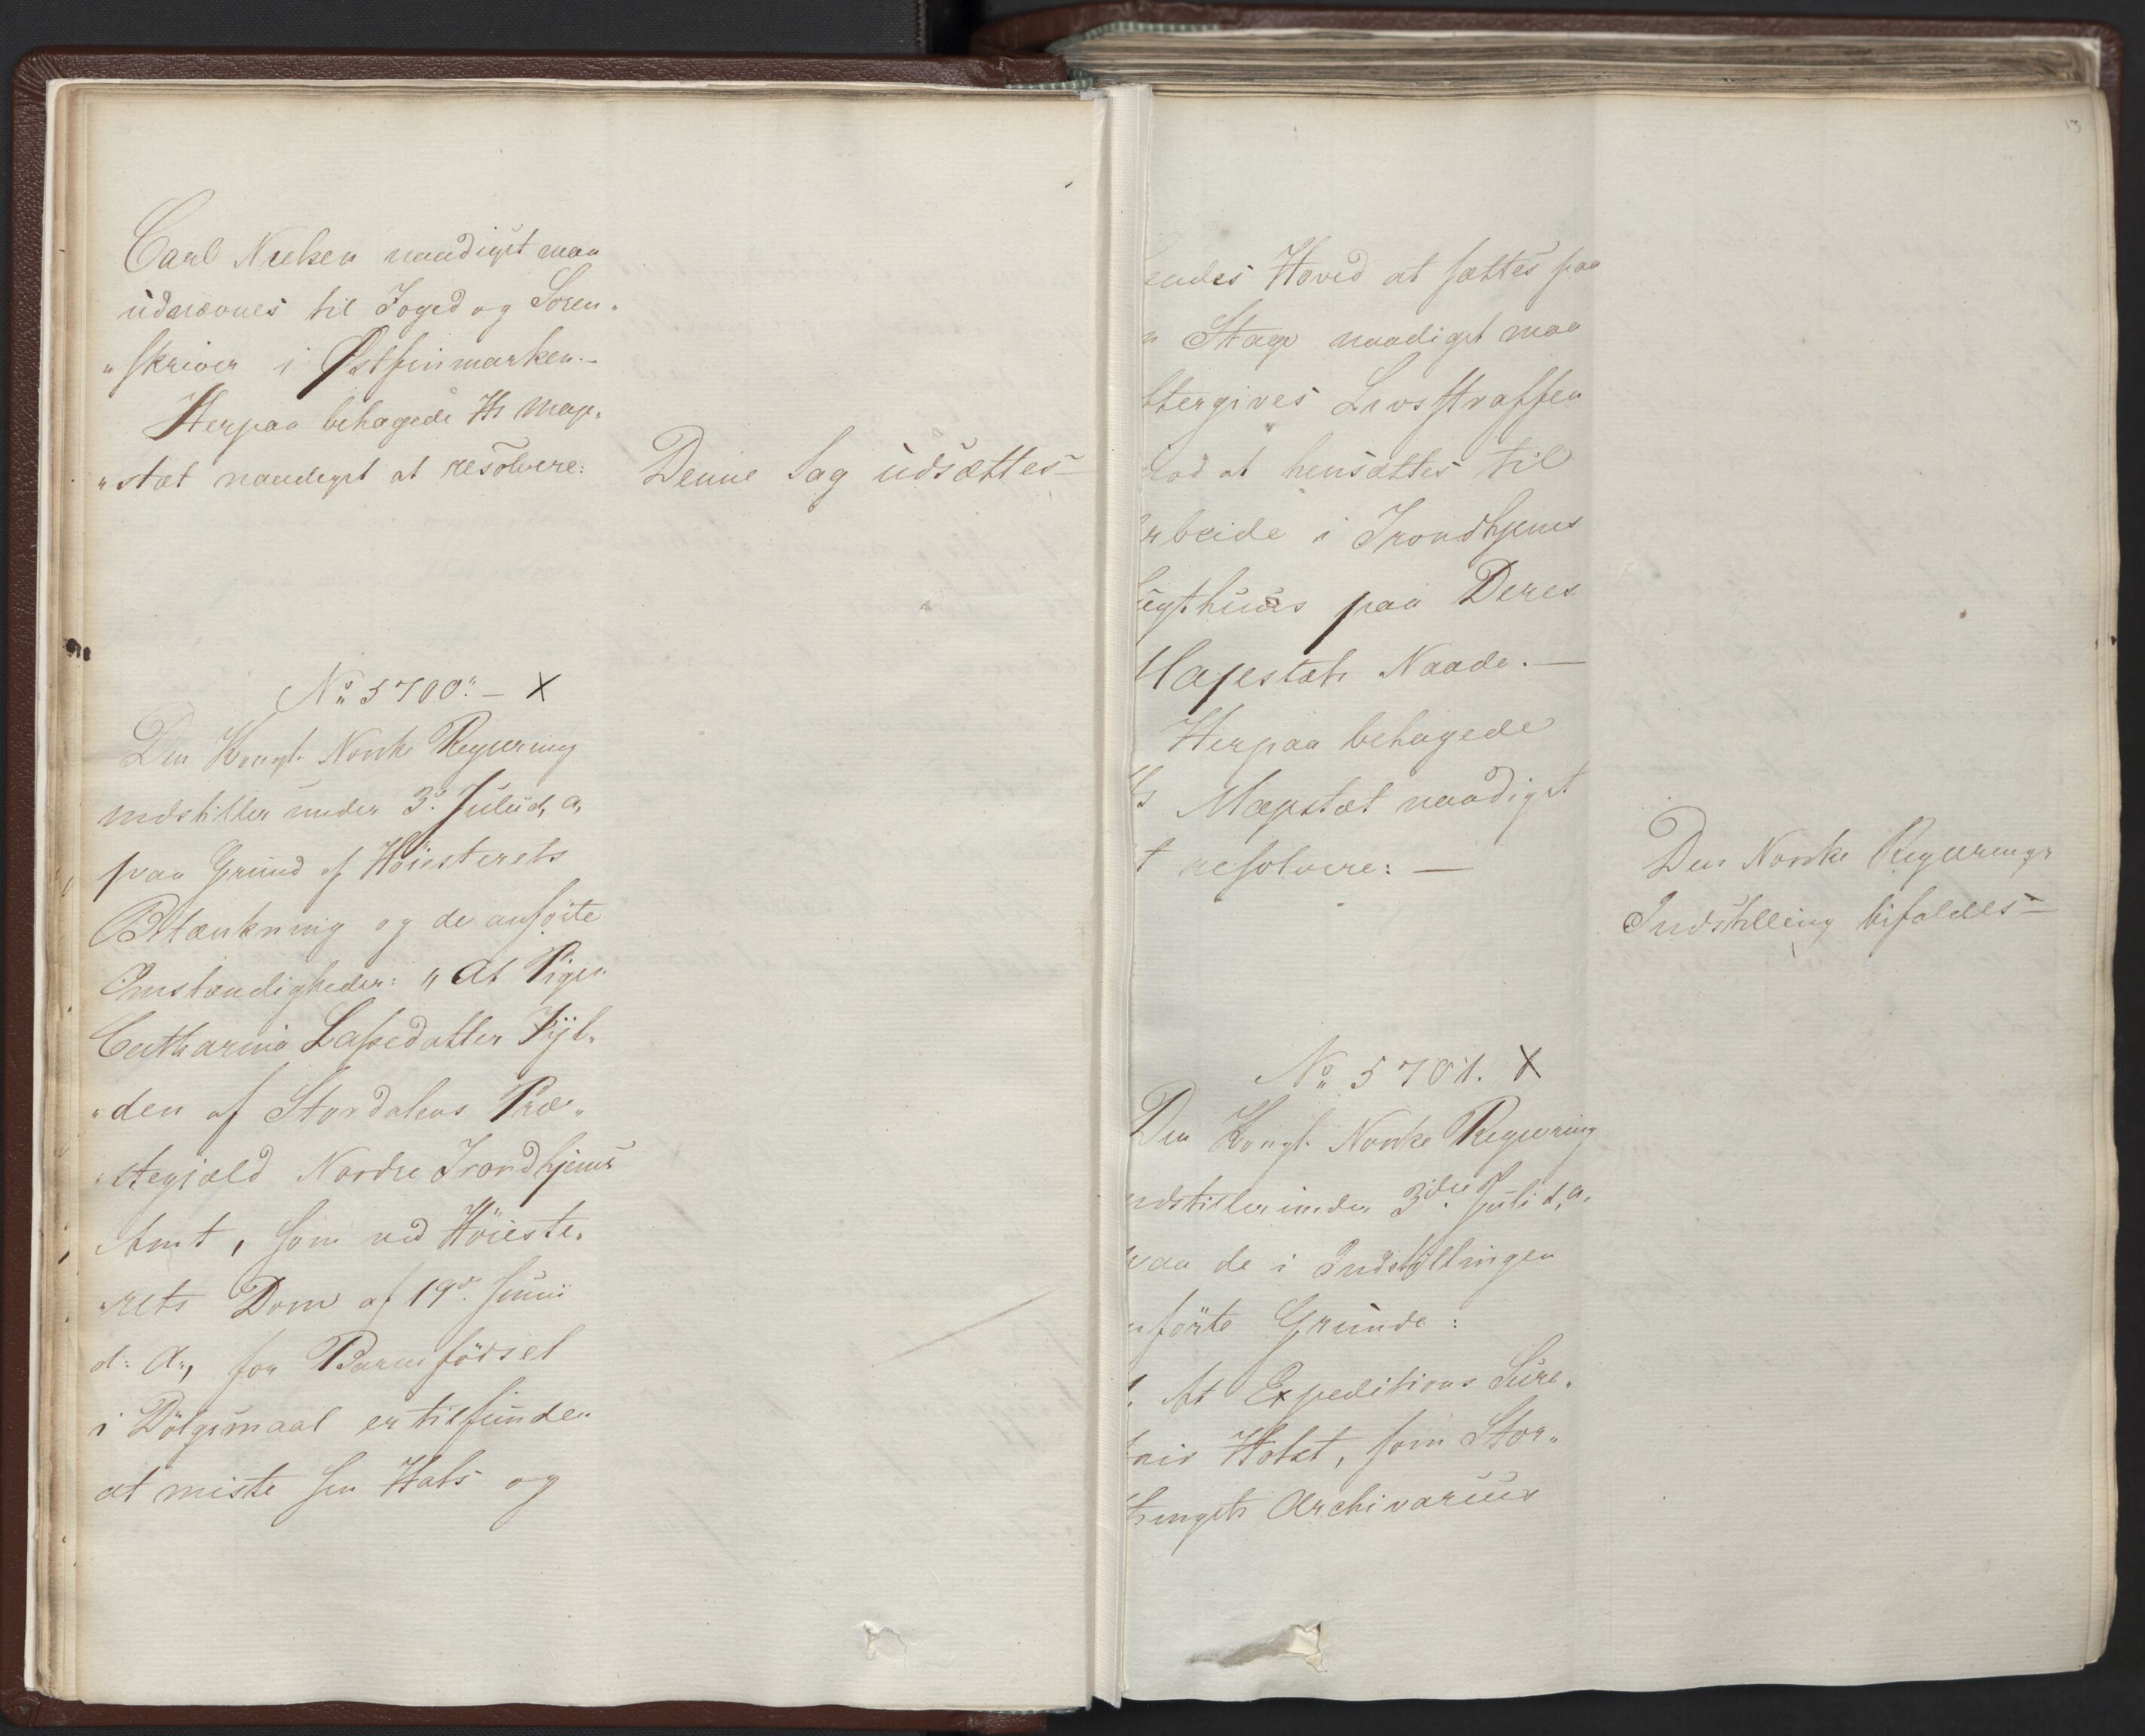 Carl Nielsen naadigst maa
udnævnes til Foged og Soren„
„skriver i Østfinmarken.–
Herpaa behagede Hs Maje„
„stæt naadigst at resolvere:
Denne Sag udsættes–
No 5700.– X
Den Kongl. Norske Regjering
indstiller under 3. Julii d. a.
paa Grund af Höiesterets
Betænkning og de anförte
Omstændigheder: „At Pigen
Catharina Lassedatter
„den af Stordalens Præ„
„stegjæld Nordre Trondhjems
Amt, som ved Höieste„
„rets Dom af 19de Junii
d: A:, for Barnefödsel
i Dölgsmaal er tilfunden
at miste sin Hals og
13
endes Hoved at sættes paa
n Stage naadigst maa
ftergives Livsstraffen
mod at hensættes til
rbeide i Trondhjems
ugthuus paa Deres
Majestæts Naade.–
Herpaa behagede
Hs Majestæt naadigst
t resolvere: –
Den Norske Regjerings
Indstilling bifaldes–
No 5701. X
Den Kongl. Norske Regjering
ndstiller under 3die Juli d. a.
paa de i Indstillingen
nförte Grunde:
1. At Expeditions Secre„
tair Holst, som Stor„
thingets Archivarius